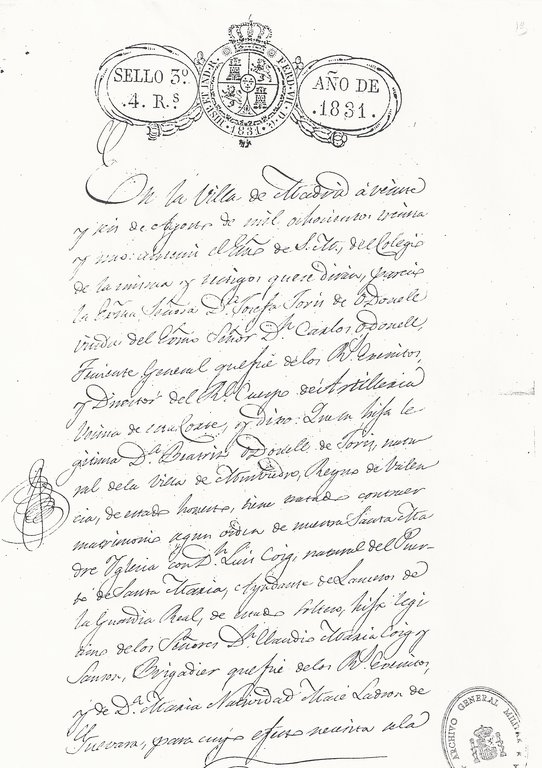 SELLO 3º.
.4. R.S
HISP. ET IND. R.
FERD. VII. D. G.
.1831.
AÑO DE
.1831.
En la Villa de Madrid á veinte
y seis de Agosto de mil ochocientos treinta
y uno: ante mi el Esno de S. M., del Colegio
de la misma y testigos que se dirán, parecio
la Exma Señora Dª Josefa Joris de ODonell
viuda del Exmo Señor Dn Carlos ODonell,
Teniente General que fué de los Rs Exercitos,
y Director del Rl Cuerpo de Artilleria
Vecina de esta Corte, y dixo: Que su hija le
gitima Dª Beatriz ODonell de Joris, natu
ral de la Villa de Murviedro, Reyno de Valen
cia, de estado honesto, tiene tratado contraer
matrimonio segun orden de nuestra Santa Ma
dre Yglesia con Dn Luis Coig, natural del Puer
to de Santa Maria, Ayudante de Lanceros de
la Guardia Real, de estado soltero, hijo legi
timo de los Señores Dn Claudio Maria Coig y
Sanson, Brigadier que fué de los Rs Exercitos,
y de Dª Maria Natividad Macé Ladron de
Guevara, para cuyo efecto necesita de la
ARCHIVO GENERAL MILITAR